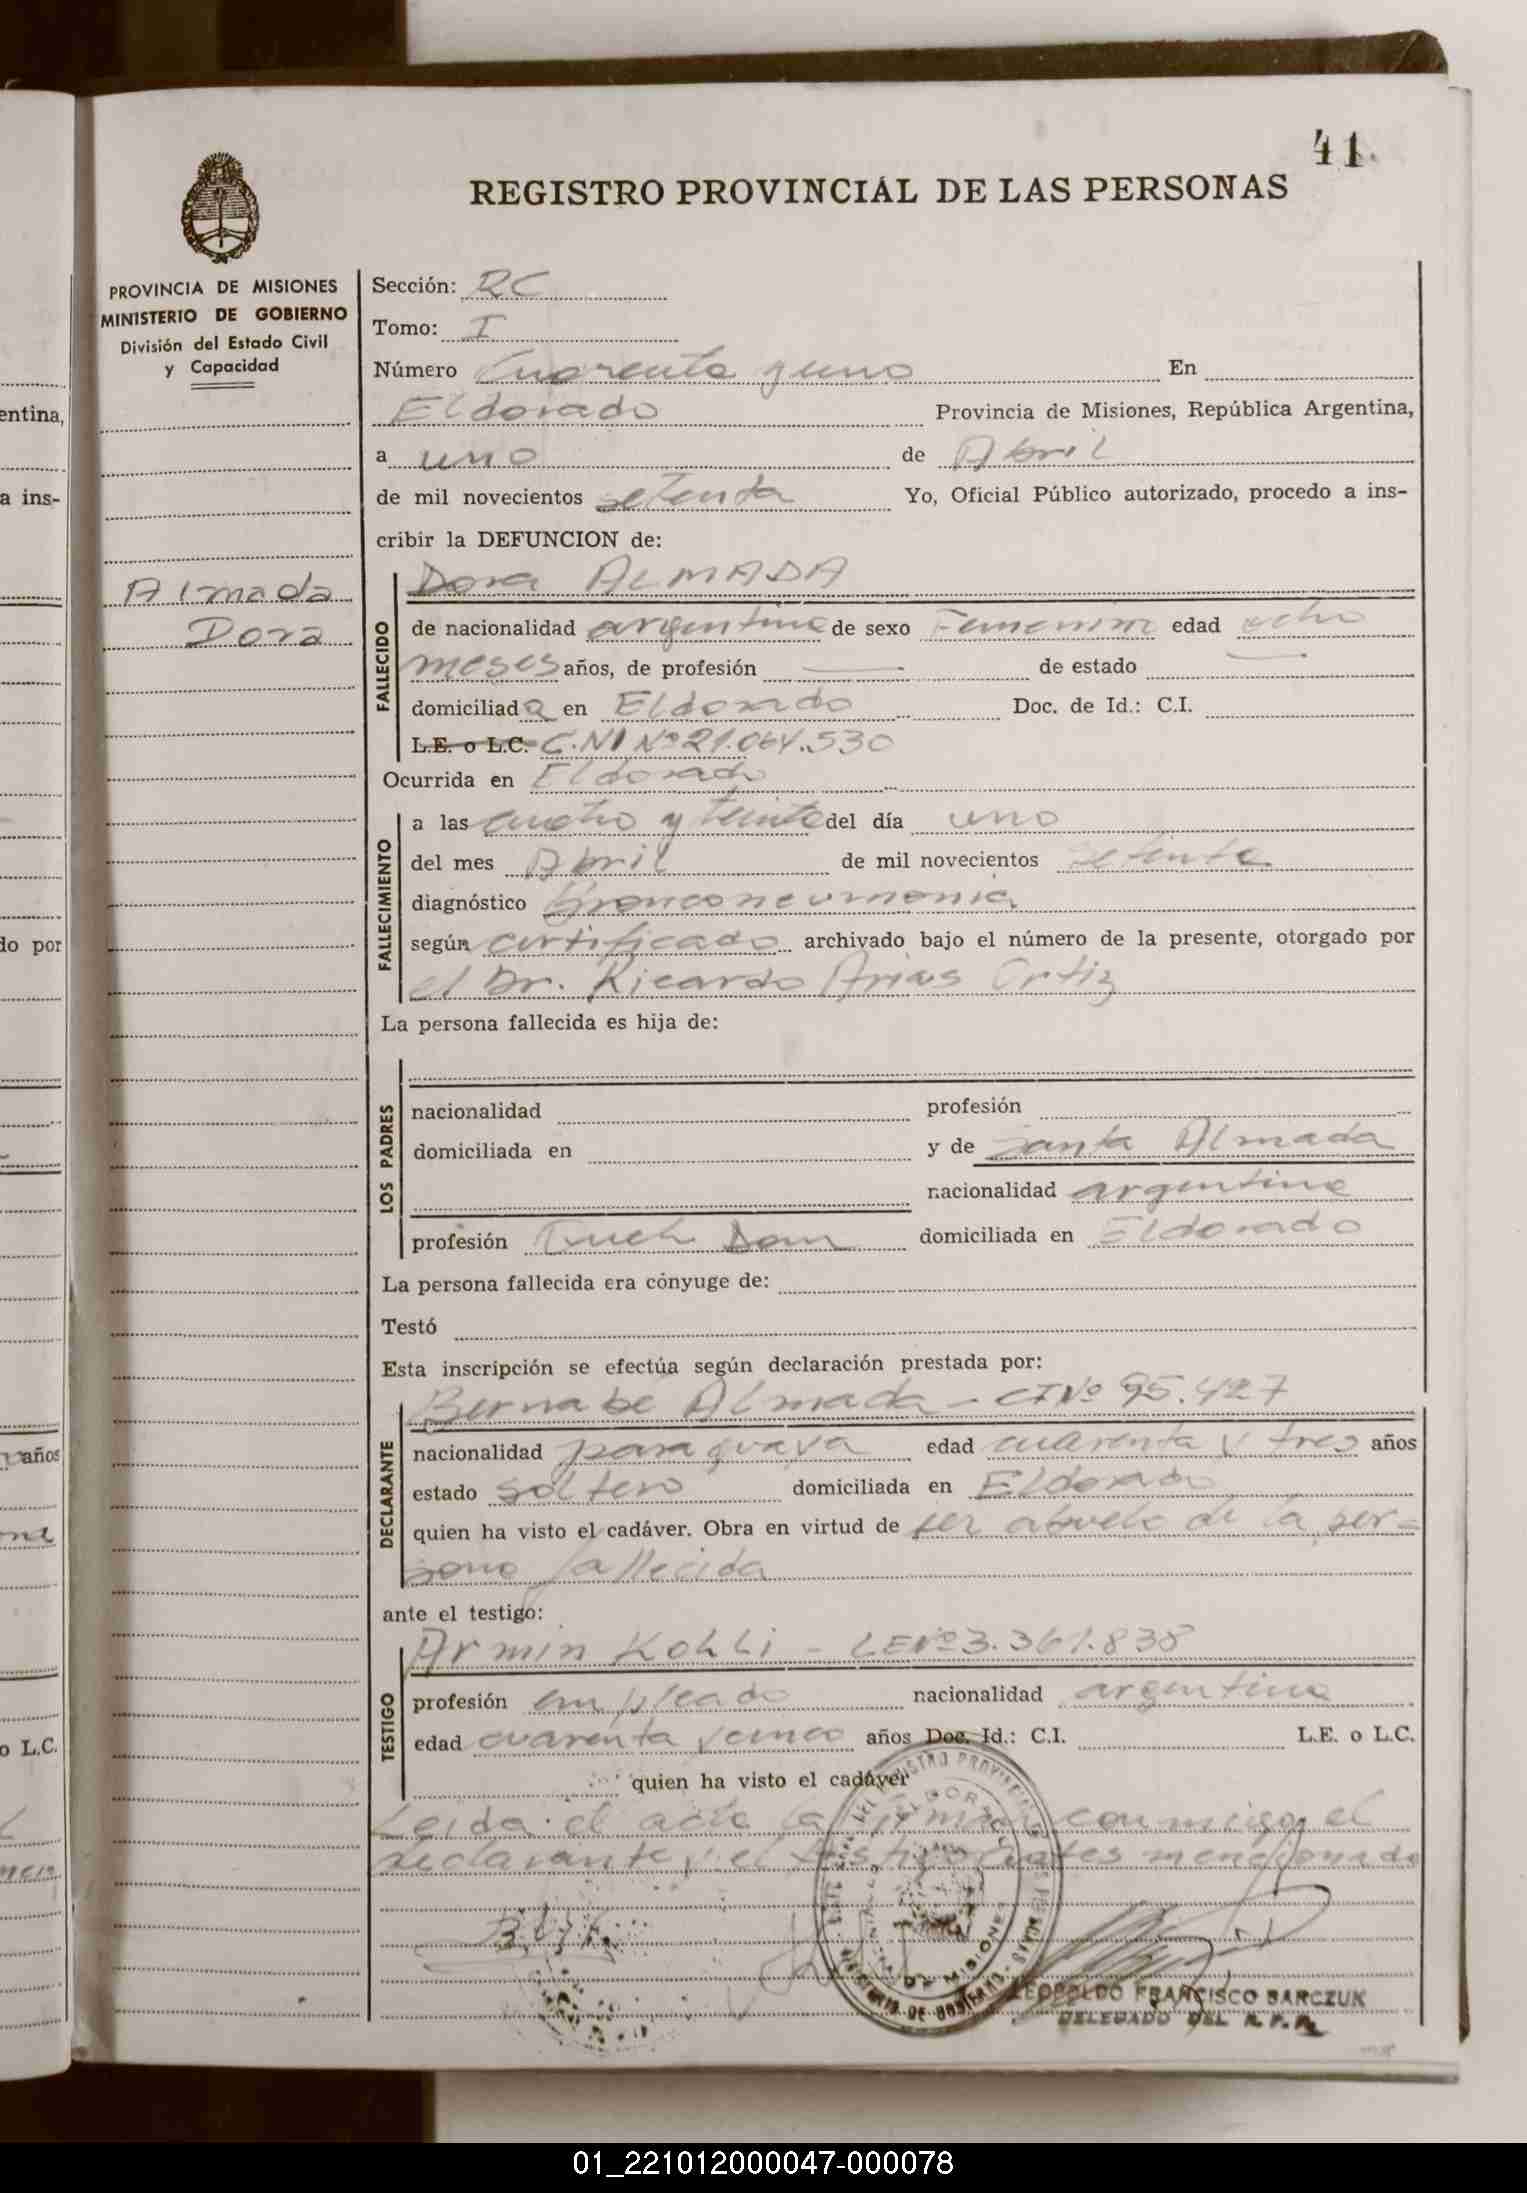 41.
REGISTRO PROVINCIAL DE LAS PERSONAS
PROVINCIA DE MISIONES
MINISTERIO DE GOBIERNO
División del Estado Civil
y Capacidad
Almada
Dora
Sección: RC
Tomo: I
Número Cuarenta y uno En
Eldorado Provincia de Misiones, República Argentina,
a uno de Abril
de mil novecientos setenta Yo, Oficial Público autorizado, procedo a ins-
cribir la DEFUNCION de:
FALLECIDO
Dora ALMADA
de nacionalidad argentina de sexo Femenino edad ocho
meses años, de profesión — de estado —
domiciliada en Eldorado Doc. de Id.: C.I.
L.E. o L.C. C.NI Nº 21.064.530
Ocurrida en Eldorado
FALLECIMIENTO
a las cuatro y treinta del día uno
del mes Abril de mil novecientos setenta
diagnóstico Bronconeumonia
según certificado archivado bajo el número de la presente, otorgado por
el Dr. Ricardo Arias Ortiz
La persona fallecida es hija de:
LOS PADRES
nacionalidad profesión
domiciliada en y de Santa Almada
nacionalidad argentina
profesión domiciliada en Eldorado
La persona fallecida era cónyuge de:
Testó
Esta inscripción se efectúa según declaración prestada por:
DECLARANTE
Bernabé Almada - CI Nº 95.427
nacionalidad paraguaya edad cuarenta y tres años
estado soltero domiciliada en Eldorado
quien ha visto el cadáver. Obra en virtud de ser abuelo de la per=
sona fallecida
ante el testigo:
TESTIGO
Armin Kohli - LE Nº 3.361.838
profesión empleado nacionalidad argentina
edad cuarenta y cinco años Doc. Id.: C.I. L.E. o L.C.
quien ha visto el cadáver
Leida el acta la firman conmigo el
declarante y el testigo antes mencionado
DE MISIONES
LEOPOLDO FRANCISCO BARCZUK
DELEGADO DEL R. P. P.
entina,
a ins-
do por
años
o L.C.
01_221012000047-000078